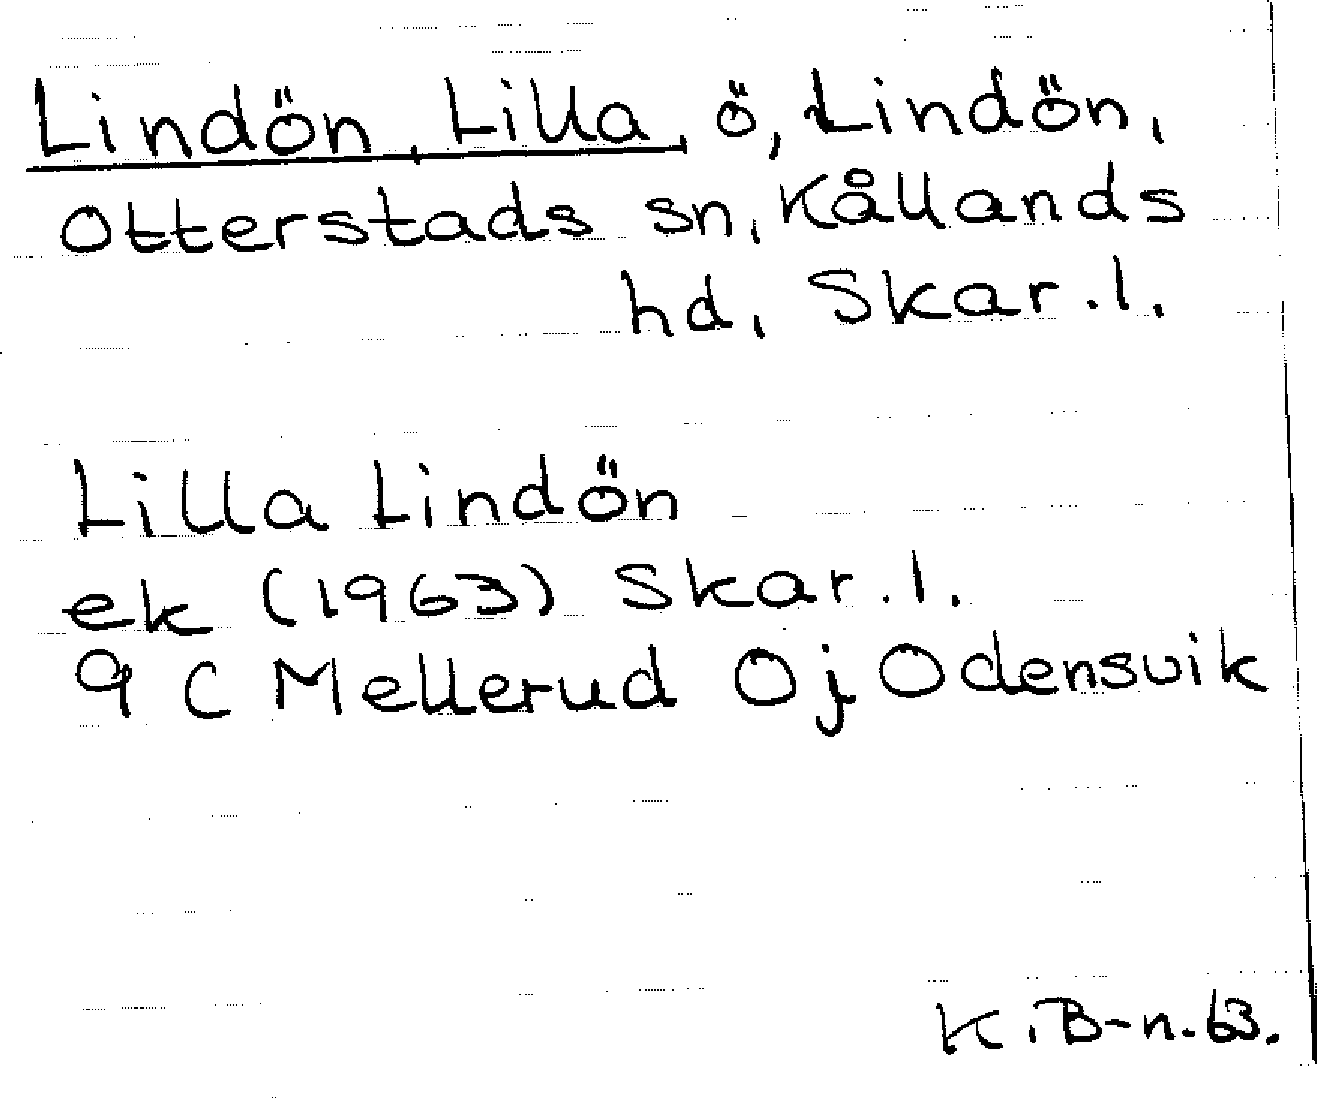 Lindön, Lilla, ö, Lindön,
Otterstads sn, Kållands
hd, Skar. l.
Lilla Lindön
ek (1963) Skar. l.
9 C Mellerud Oj Odensvik
K. B-n. 63.